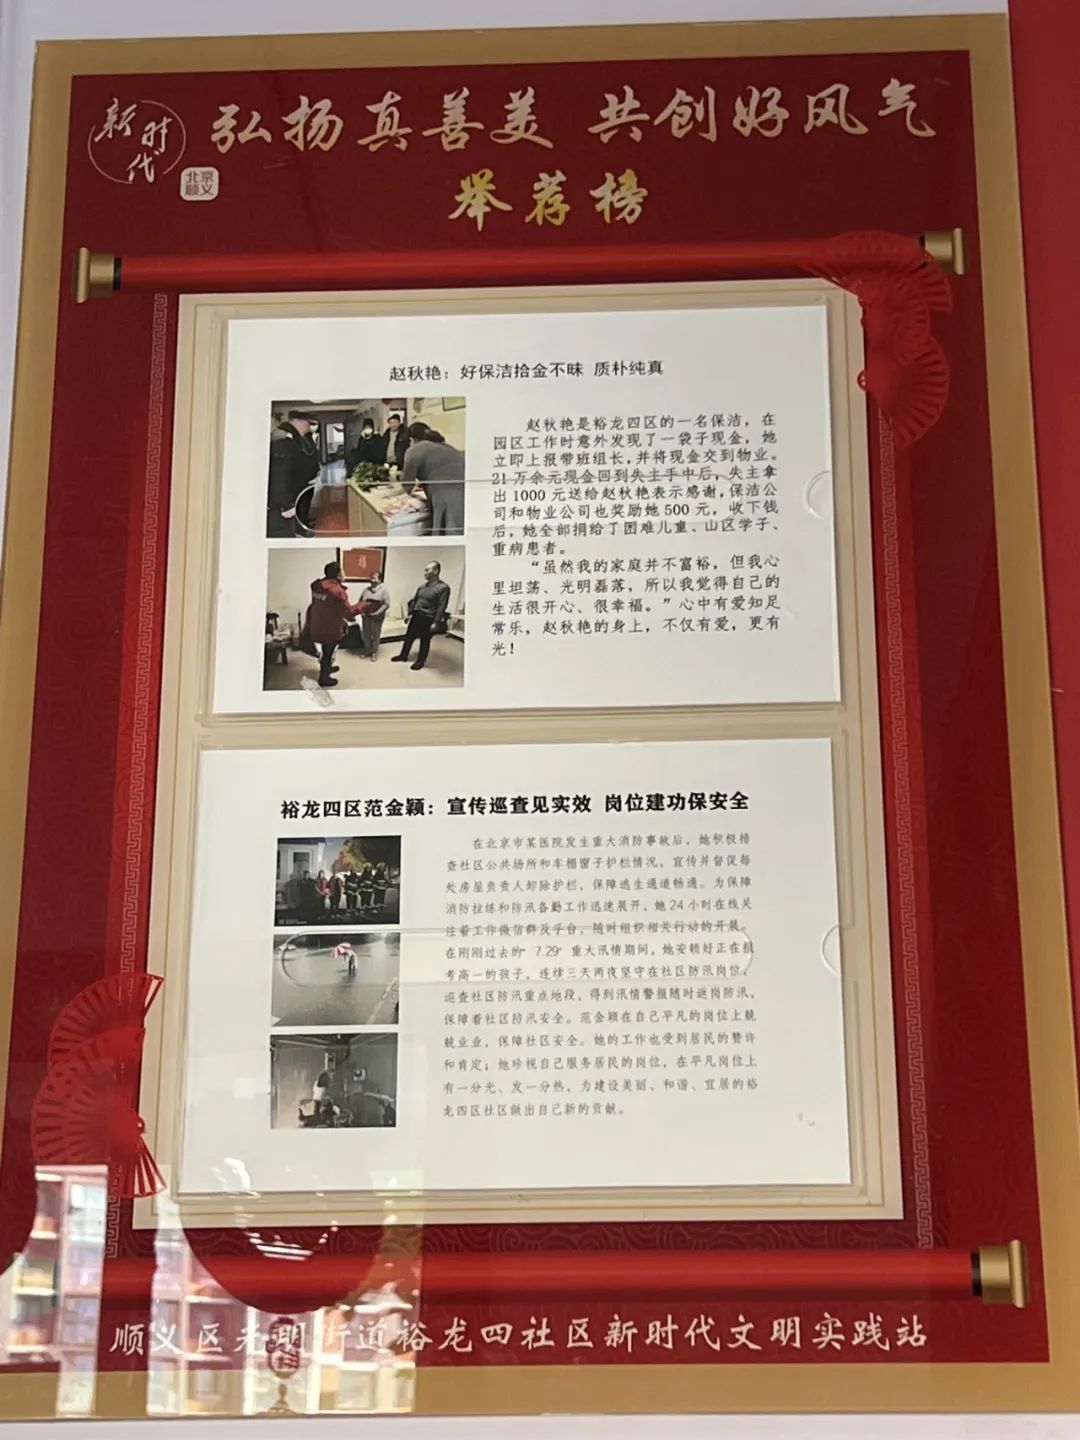 新时代
北京
顺义
弘扬真善美 共创好风气
举荐榜
赵秋艳：好保洁拾金不昧 质朴纯真
赵秋艳是裕龙四区的一名保洁，在
园区工作时意外发现了一袋子现金，她
立即上报带班组长，并将现金交到物业。
21万余元现金回到失主手中后，失主拿
出1000元送给赵秋艳表示感谢，保洁公
司和物业公司也奖励她500元，收下钱
后，她全部捐给了困难儿童、山区学子、
重病患者。
“虽然我的家庭并不富裕，但我心
里坦荡、光明磊落，所以我觉得自己的
生活很开心、很幸福。”心中有爱知足
常乐，赵秋艳的身上，不仅有爱，更有
光！
裕龙四区范金颖：宣传巡查见实效 岗位建功保安全
在北京市某医院发生重大消防事故后，她积极排
查社区公共场所和车棚窗子护栏情况，宣传并督促每
处房屋负责人卸除护栏，保障逃生通道畅通。为保障
消防拉练和防汛备勤工作迅速展开，她24小时在线关
注着工作微信群及平台，随时组织相关行动的开展。
在刚刚过去的“7.29”重大汛情期间，她安顿好正在报
考高一的孩子，连续三天两夜坚守在社区防汛岗位，
巡查社区防汛重点地段，得到汛情警报随时返岗防汛，
保障着社区防汛安全。范金颖在自己平凡的岗位上兢
兢业业，保障社区安全。她的工作也受到居民的赞许
和肯定；她珍视自己服务居民的岗位，在平凡岗位上
有一分光、发一分热，为建设美丽、和谐、宜居的裕
龙四区社区做出自己新的贡献。
顺义区光明街道裕龙四社区新时代文明实践站